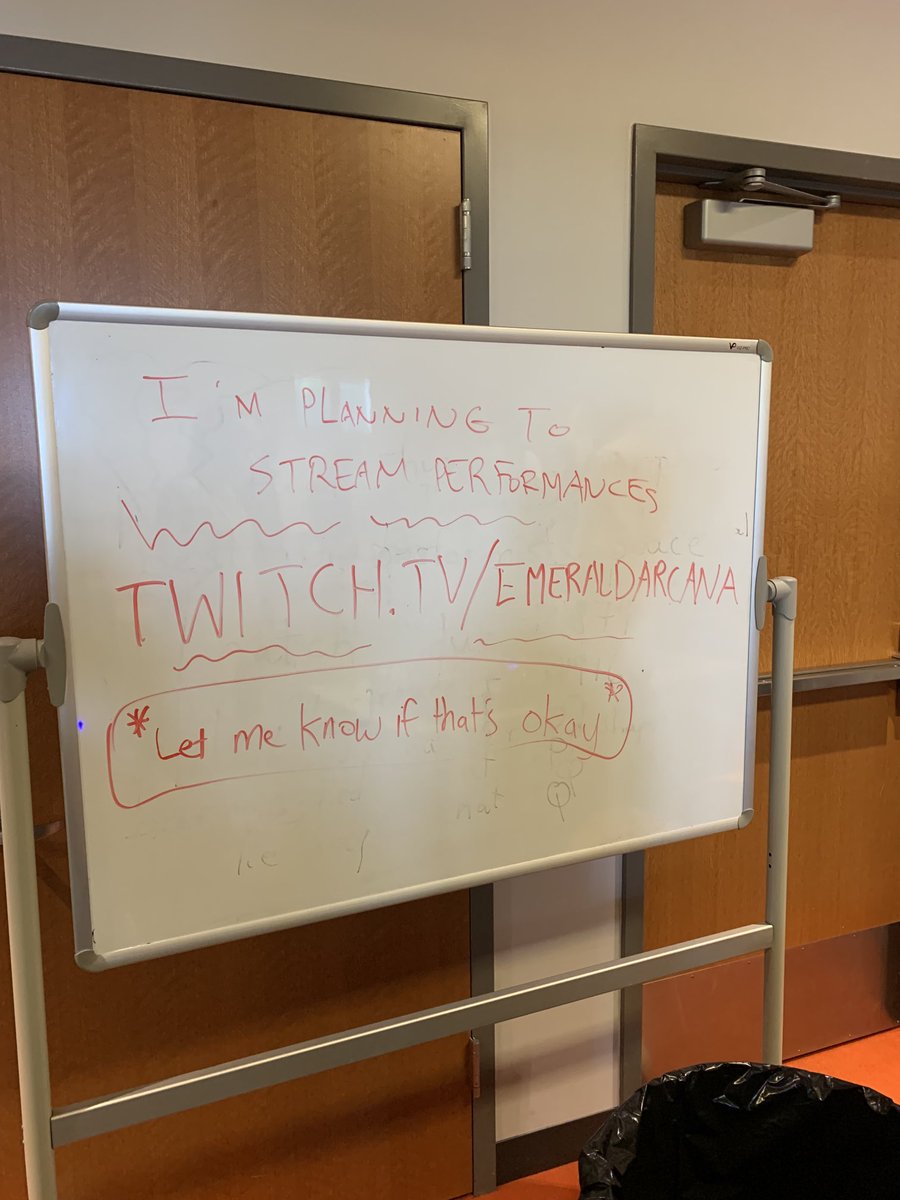 I'M PLANNING TO
STREAM PERFORMANCES
TWITCH.TV/EMERALDARCANA
*Let me know if that's okay*